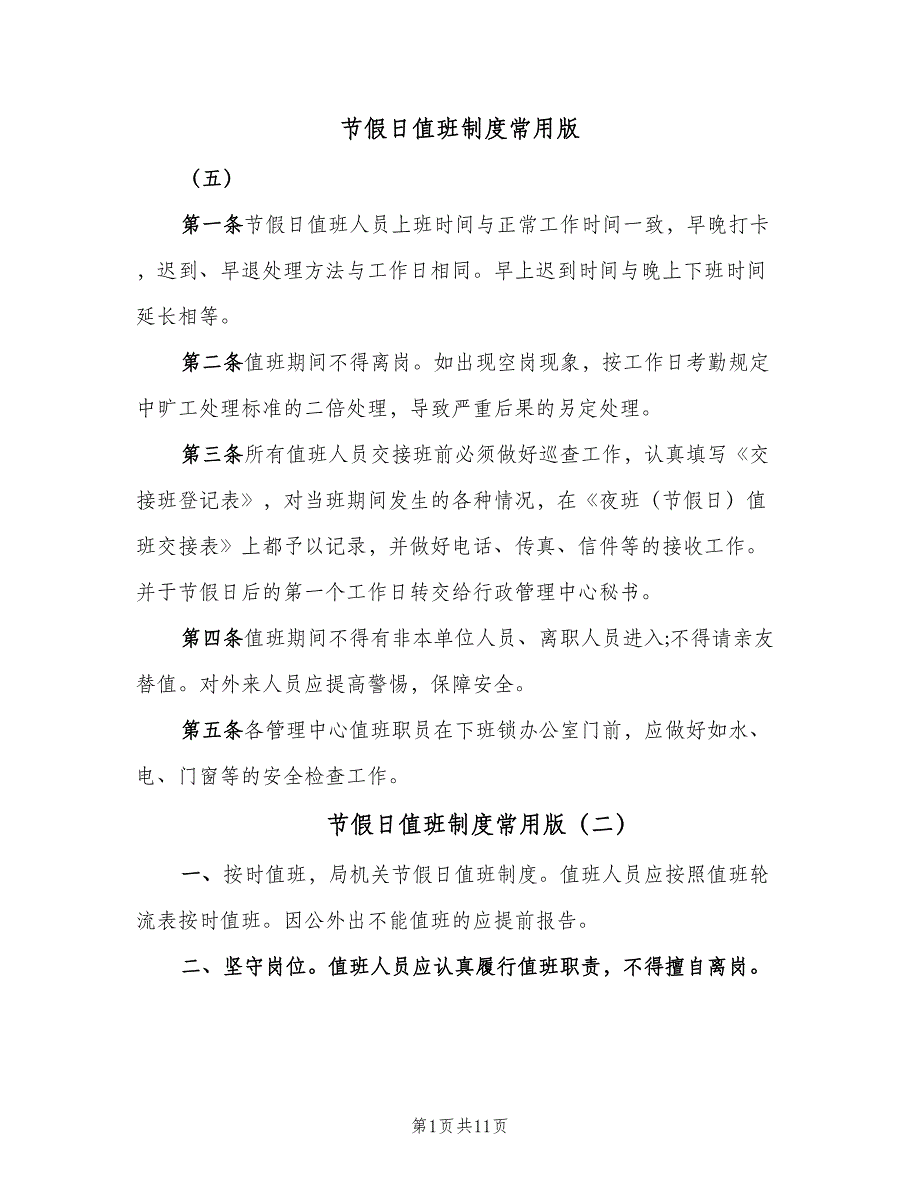 节假日值班制度常用版
（五）
第一条节假日值班人员上班时间与正常工作时间一致，早晚打卡
，迟到、早退处理方法与工作日相同。早上迟到时间与晚上下班时间
延长相等。
第二条值班期间不得离岗。如出现空岗现象，按工作日考勤规定
中旷工处理标准的二倍处理，导致严重后果的另定处理。
第三条所有值班人员交接班前必须做好巡查工作，认真填写《交
接班登记表》，对当班期间发生的各种情况，在《夜班（节假日）值
班交接表》上都予以记录，并做好电话、传真、信件等的接收工作。
并于节假日后的第一个工作日转交给行政管理中心秘书。
第四条值班期间不得有非本单位人员、离职人员进入;不得请亲友
替值。对外来人员应提高警惕，保障安全。
第五条各管理中心值班职员在下班锁办公室门前，应做好如水、
电、门窗等的安全检查工作。
节假日值班制度常用版（二）
一、按时值班，局机关节假日值班制度。值班人员应按照值班轮
流表按时值班。因公外出不能值班的应提前报告。
二、坚守岗位。值班人员应认真履行值班职责，不得擅自离岗。
第1页共11页